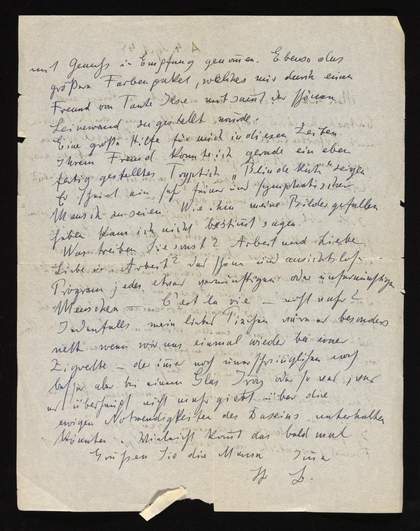 mit Genuss in Empfang genommen. Ebenso das
große Farbenpaket, welches mir durch einen
Freund von Tante Ilse mitsamt der schönen
Leinwand zugestellt wurde.
Eine große Hilfe für mich in diesen Zeiten
Ihrem Freund konnte ich gerade ein eben
fertig gestelltes Tryptich "Blinde Kuh" zeigen
Er scheint ein sehr feiner und symphatischer
Mensch zu sein. Wie ihm meine Bilder gefallen
haben kann ich nicht bestimmt sagen.
Was treiben Sie sonst? Arbeit und Liebe
Liebe und Arbeit? das schöne und aussichtslose
Programm jedes etwas vernünftigen oder unvernünftigen
Menschen — C'est la vie — nicht wahr?
Jedenfalls mein lieber wär es besonders
nett wenn wir uns einmal wieder bei einer
Zigarette — die immer noch unerschwinglich noch
besser aber bei einem Glas oder so was,
es überhaupt nicht mehr giebt über die
ewigen Notwendigkeiten des Daseins unterhalten
könnten. Vielleicht kommt das bald mal
Grüßen Sie die Mama Ihr
B.